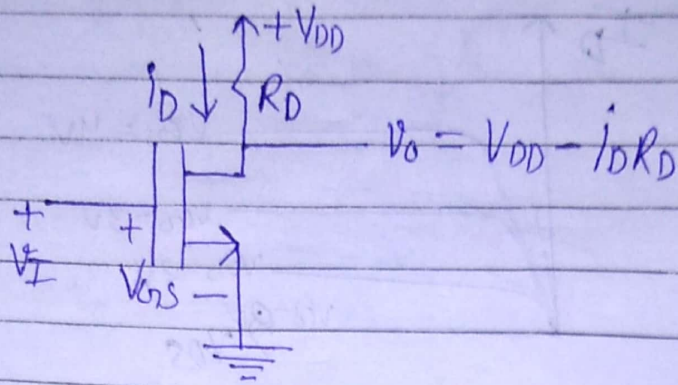 +VDD
iD
RD
vo = VDD - iDRD
+
vI
+
VGS -